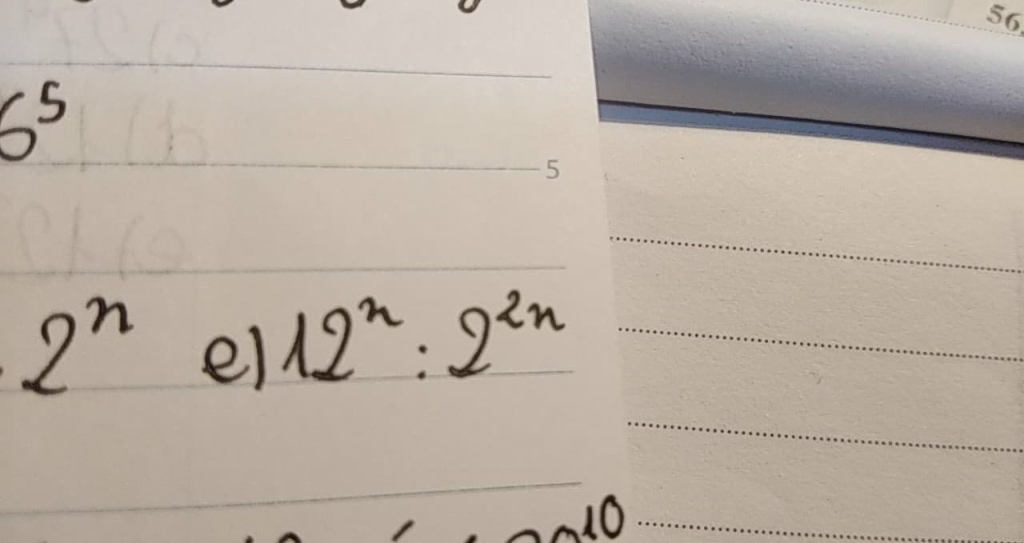 56
6⁵
5
2ⁿ e) 12ⁿ : 2²ⁿ
10